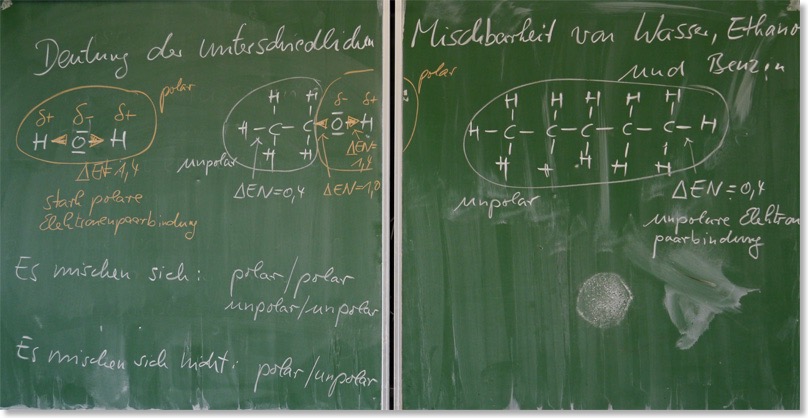 Deutung der unterschiedlichen Mischbarkeit von Wasser, Ethano
und Benzin
polar
δ+ δ- δ+
H O H
ΔEN=1,4
stark polare
Elektronenpaarbindung
H H δ- δ+
H - C - C O H
H H
ΔEN=
1,4
unpolar
ΔEN=0,4 ΔEN=1,0
polar
H H H H H
H - C - C - C - C - C - H
H H H H H
unpolar
ΔEN=0,4
unpolare Elektron
paarbindung
Es mischen sich: polar/polar
unpolar/unpolar
Es mischen sich nicht: polar/unpolar